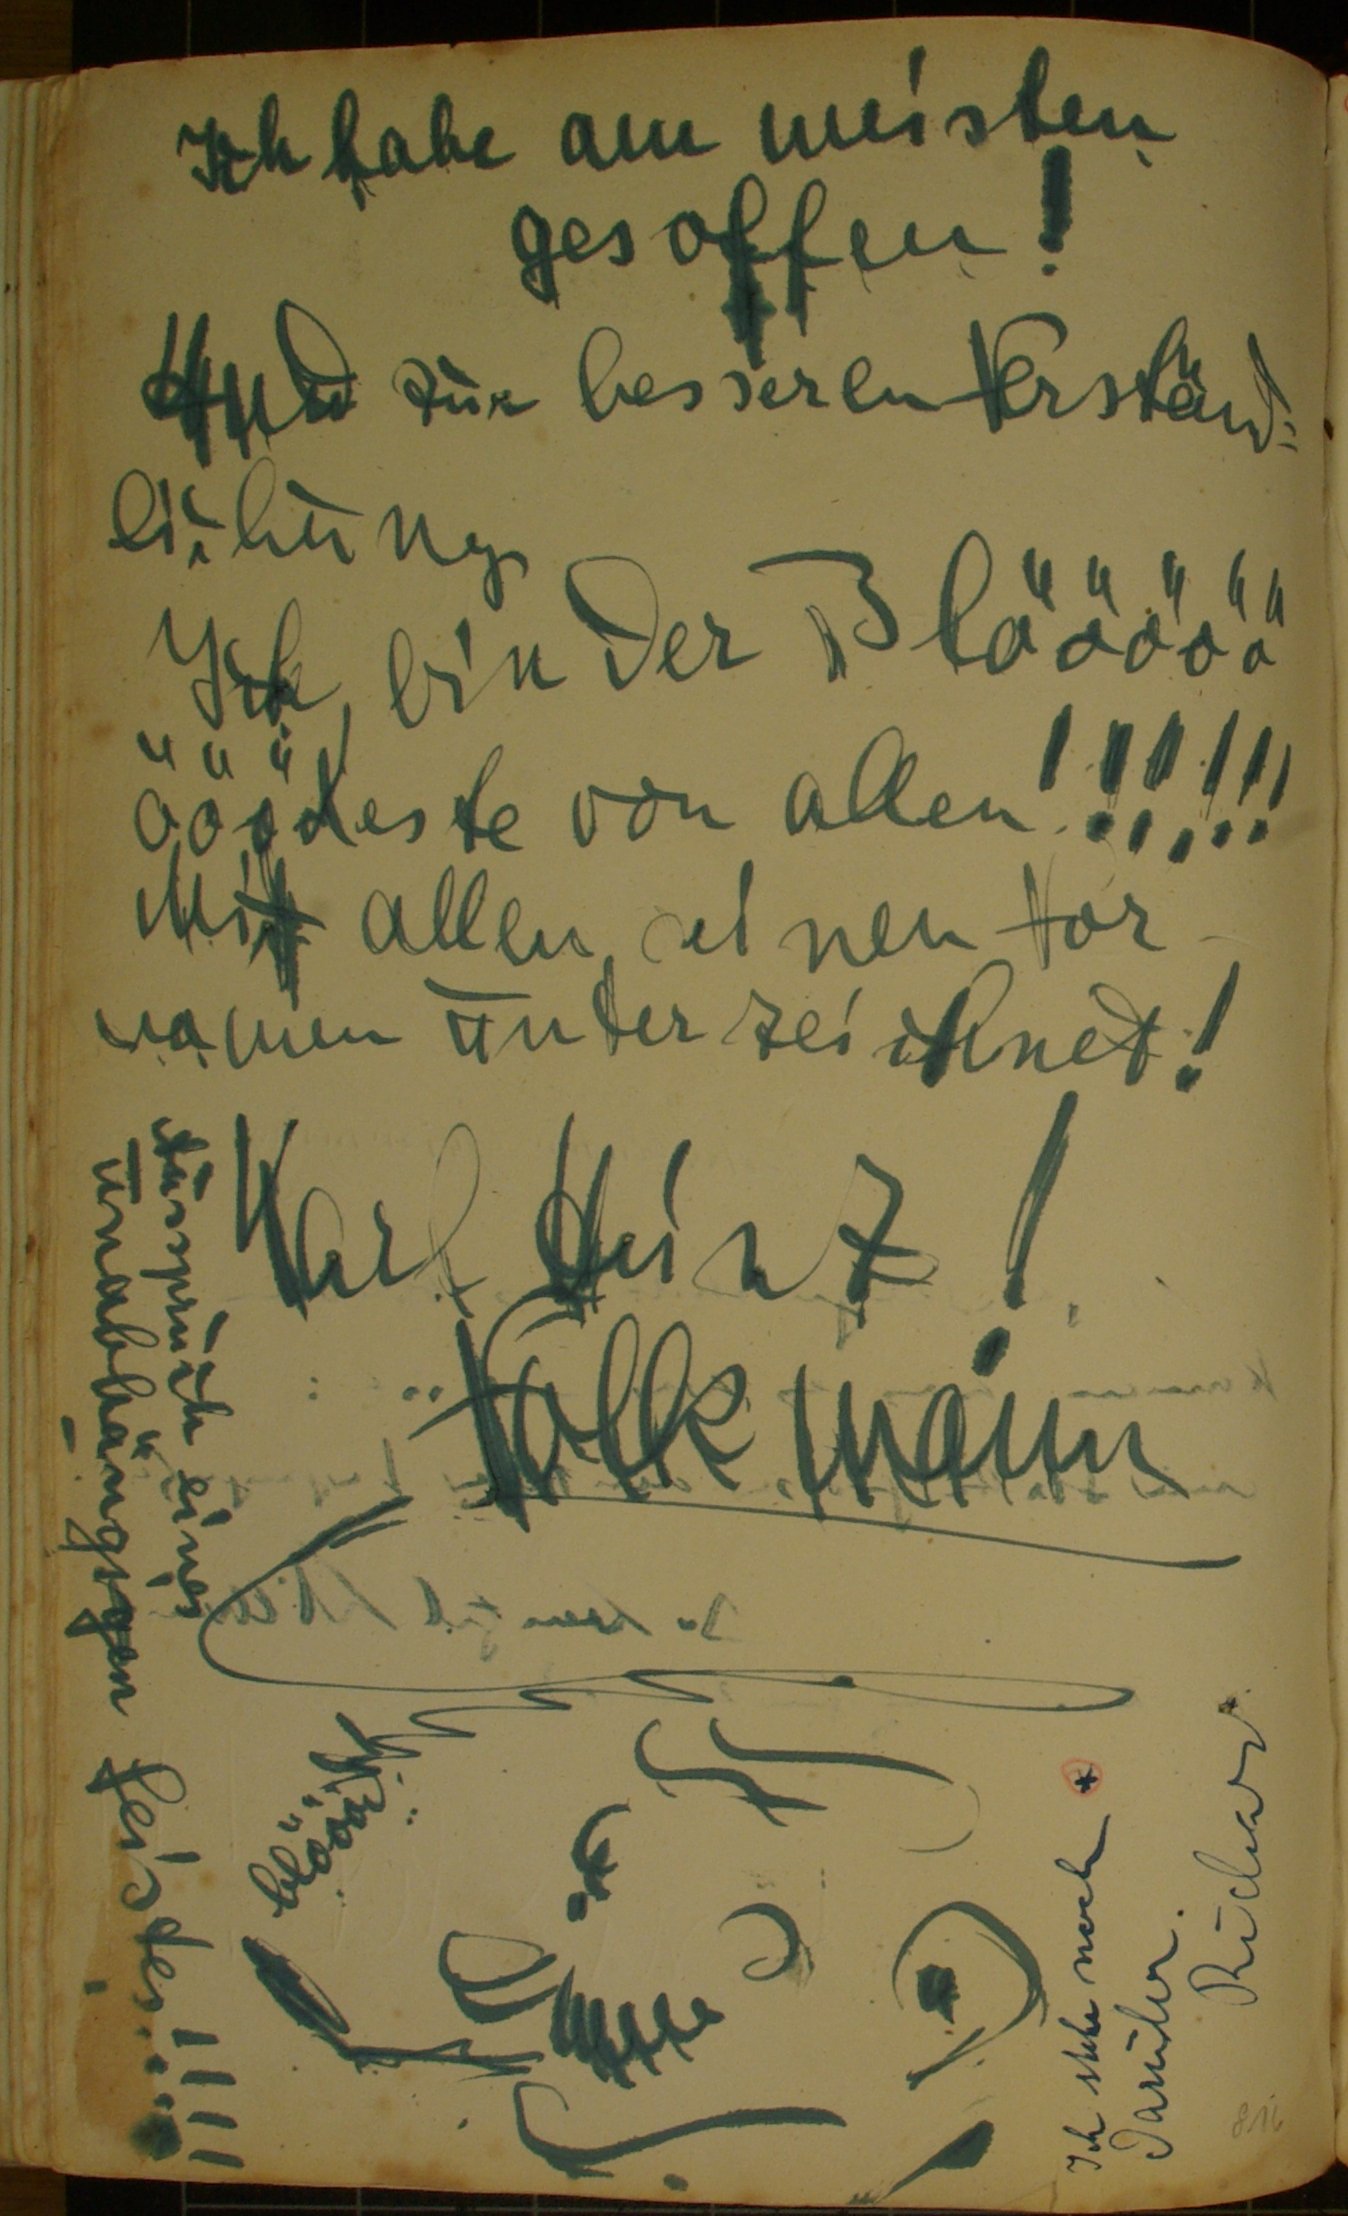 Ich habe am meisten
gesoffen!
Und zur besseren Verständ-
lichung
Ich bin der Blööööö
ööödeste von allen!!!!!!
Mit allen einen Vor-
namen unterzeichnet!
Karl Heinz!
Volkmann
Ausspruch eines
unabhängigen Geistes!!!!
Ich stehe noch *
Darüber.
Richar
816